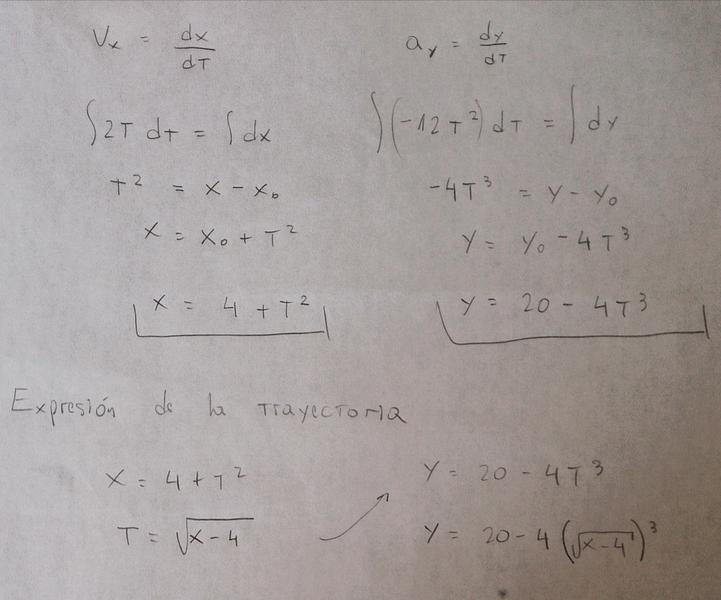 Vx = dx/dT    ay = dy/dT
∫2T dt = ∫dx    ∫(-12T²)dT = ∫dy
T² = x - x₀    -4T³ = y - y₀
x = x₀ + T²    y = y₀ - 4T³
x = 4 + T²    y = 20 - 4T³
Expresión de la trayectoria
x = 4 + T²    y = 20 - 4T³
T = √(x-4)    y = 20 - 4(√(x-4))³